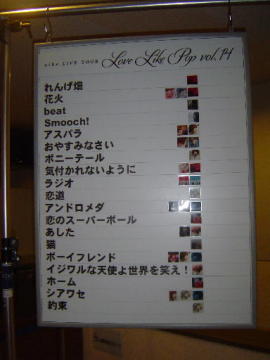 aiko LIVE TOUR Love Like Pop vol.14
れんげ畑
花火
beat
Smooch!
アスパラ
おやすみなさい
ポニーテール
気付かれないように
ラジオ
恋道
アンドロメダ
恋のスーパーボール
あした
猫
ボーイフレンド
イジワルな天使よ世界を笑え!
ホーム
シアワセ
約束